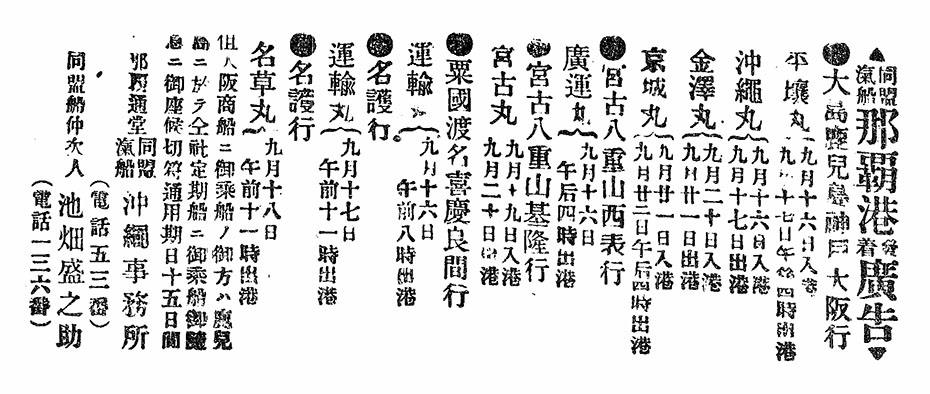 ▲同盟汽船那覇港發着廣告▼
●大島鹿兒島神戸大阪行
平壤丸 九月十六日入港
九月十七日午後四時出港
沖繩丸 九月十六日入港
九月十七日出港
金澤丸 九月二十日入港
九月廿一日出港
京城丸 九月廿一日入港
九月廿二日午后四時出港
●宮古八重山西表行
廣運丸 九月十六日
午后四時出港
●宮古八重山基隆行
宮古丸 九月十九日入港
九月二十日出港
●粟國渡名喜慶良間行
運輸丸 九月十六日
午前八時出港
●名護行。
運輸丸 九月十七日
午前十一時出港
●名護行
名草丸 九月十八日
午前十一時出港
但大阪商船ニ御乘船ノ御方ハ鹿兒
島ニ於テ仝社定期船ニ御乘船御隨
意ニ御座候切符通用期日十五日間
那覇通堂 同盟汽船 沖繩事務所
(電話五三番)
同盟船仲次人 池畑盛之助
(電話一三六番)